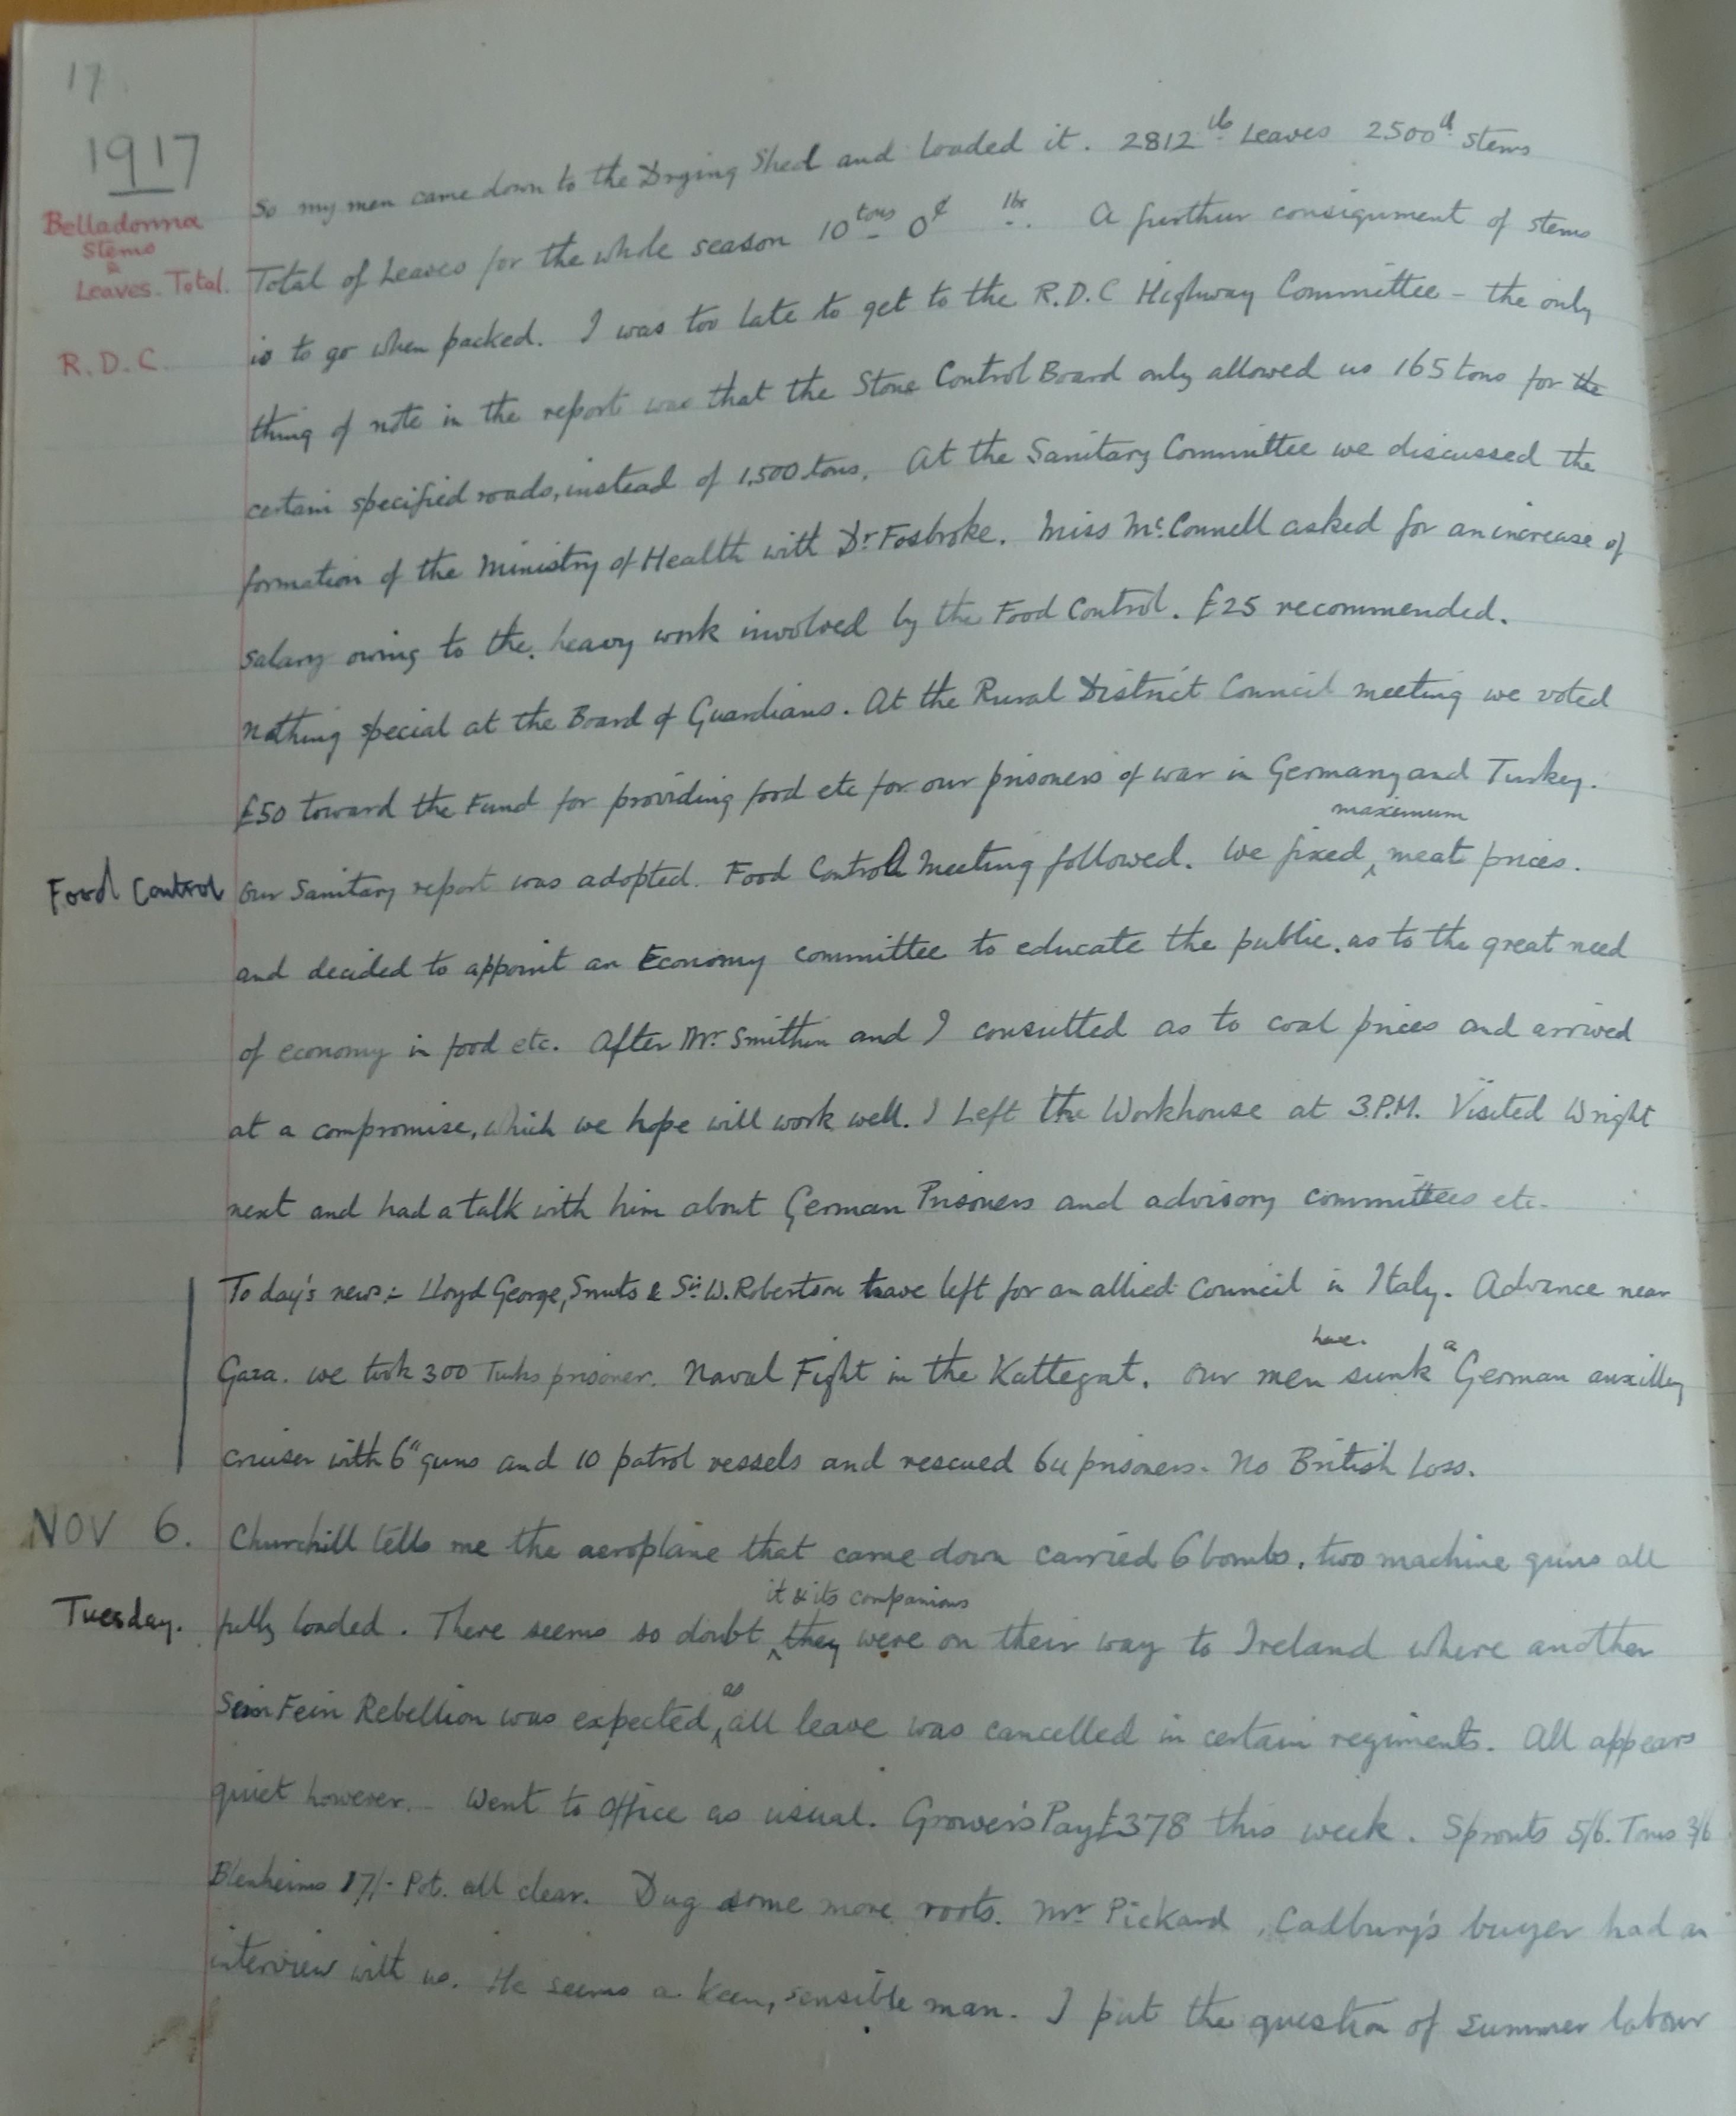 17
1917
So my men came down to the Drying Shed and loaded it. 2812 lbs Leaves 2500 lb stems
Belladonna
Stems
&
Leaves. Total.
Total of Leaves for the whole season 10 tons 0 c lbs. A further consignment of stems
is to go when packed. I was too late to get to the R.D.C Highway Committee - the only
R.D.C.
thing of note in the report was that the Stone Control Board only allowed us 165 tons for the
certain specified roads, instead of 1,500 tons. At the Sanitary Committee we discussed the
formation of the Ministry of Health with Dr. Fosbroke. Miss McConnell asked for an increase of
salary owing to the heavy work involved by the Food Control. £25 recommended.
Nothing special at the Board of Guardians. At the Rural District Council meeting we voted
£50 toward the Fund for providing food etc for our prisoners of war in Germany and Turkey.
maximum
Food Control
Our Sanitary report was adopted. Food Control Meeting followed. We fixed ‸ meat prices.
and decided to appoint an Economy committee to educate the public as to the great need
of economy in food etc. After Mr. Smithin and I consulted as to coal prices and arrived
at a compromise, which we hope will work well. I left the Workhouse at 3 P.M. Visited Wright
next and had a talk with him about German Prisoners and advisory committees etc.
Today's news:- Lloyd George, Smuts & Sir W. Robertson have left for an allied Council in Italy. Advance near
have. a
Gaza. We took 300 Turks prisoner. Naval Fight in the Kattegat. Our men sunk German auxilley
cruiser with 6" guns and 10 patrol vessels and rescued 64 prisoners. No British Loss.
NOV 6.
Churchill tells me the aeroplane that came down carried 6 bombs, two machine guns all
it & its companions
Tuesday.
fully loaded. There seems so doubt ‸ they were on their way to Ireland where another
as
Sein Fein Rebellion was expected, ‸ all leave was cancelled in certain regiments. All appears
quiet however. - Went to Office as usual. Grower's Pay £378 this week. Sprouts 5/6. Toms 3/6
Blenheims 17/- Pot. all clear. Dug some more roots. Mr Pickard, Cadbury's buyer had an
interview with us. He seems a keen, sensible man. I put the question of summer labour